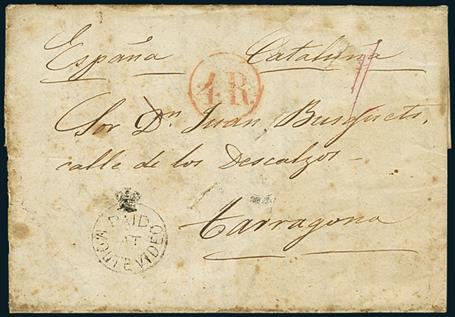 España Cataluña
4 R.
Sor Dn Juan Busquets,
calle de los Descalzos -
Tarragona
PAID
AT
MONTEVIDEO